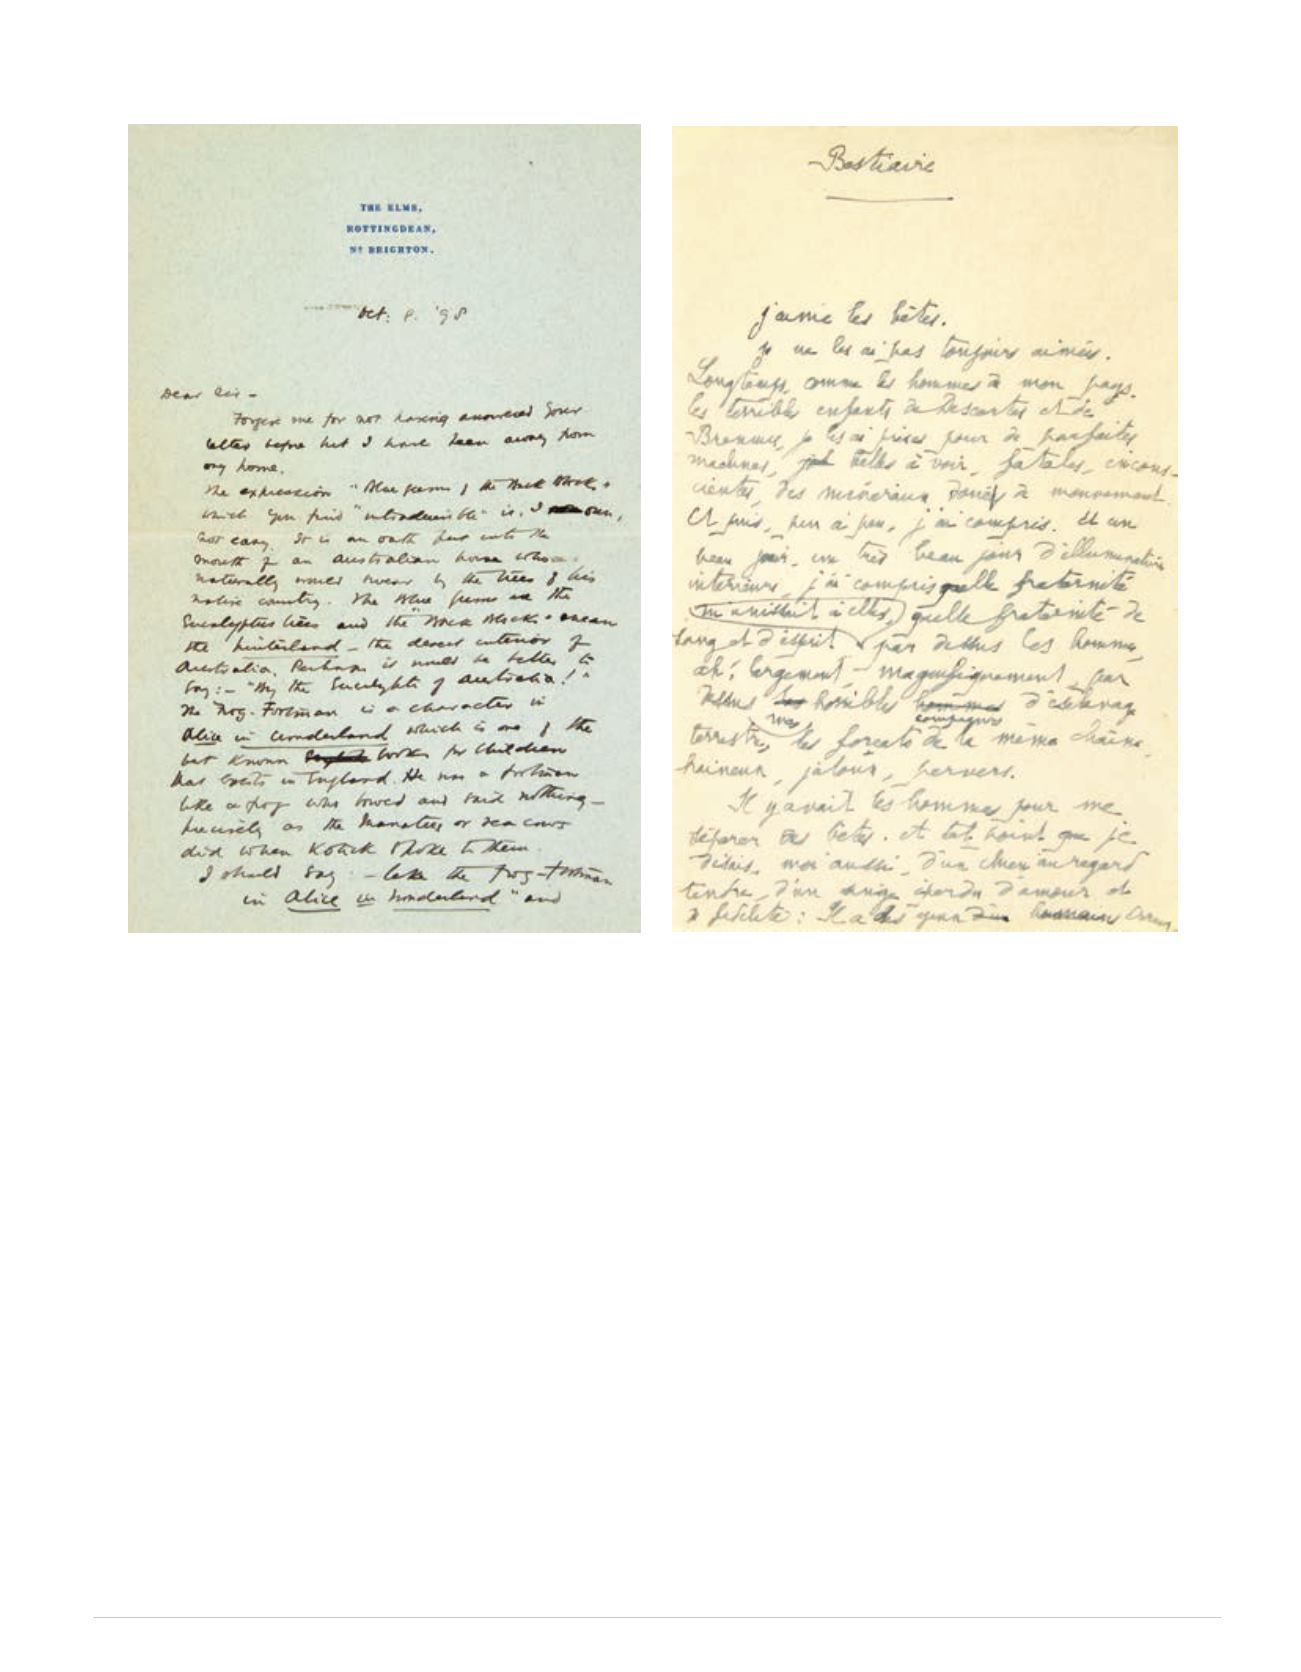 THE ELMS,
ROTTINGDEAN,
Nr BRIGHTON.
Oct: 8. '98
Dear Sir -
Forgive me for not having answered your
letter before but I have been away from
my home.
The expression "Blue gums of the Back Blocks"
which you find "intraduisible" is, I own,
not easy. It is an oath put into the
mouth of an Australian horse who
naturally would swear by the trees of his
native country. The Blue gums are the
Eucalyptus trees and the "Back Blocks" mean
the hinterland - the desert interior of
Australia. Perhaps it would be better to
say: - "By the Eucalypts of Australia!"
The Frog-Footman is a character in
Alice in Wonderland which is one of the
best known books for children
that exists in England. He was a footman
like a frog who bowed and said nothing -
precisely as the Manatees or sea cows
did when Kotick spoke to them.
I should say - like the Frog-Footman
in Alice in Wonderland" and
Bestiaire
J'aime les bêtes.
Je ne les ai pas toujours aimées.
Longtemps, comme les hommes de mon pays,
les terribles enfants de Descartes et de
je les ai prises pour de parfaites
machines, belles à voir, fatales, incons-
cientes, des minéraux doués de mouvement.
Et puis, peu à peu, j'ai compris. Et un
beau jour, un très beau jour d'illumination
intérieure, j'ai compris quelle fraternité
m'unissait à elles, quelle fraternité de
sang et d'esprit par dessus les hommes,
ah! largement, magnifiquement, par
dessus les horribles hommes d'esclavage
mes compagnons
terrestre, les forçats de la même chaîne,
haineux, jaloux, pervers.
Il y avait les hommes pour me
séparer des bêtes. et tel point que je
disais, moi aussi, d'un chien au regard
tendre, d'un singe éperdu d'amour et
de fidélité: Il a des yeux d'un humain